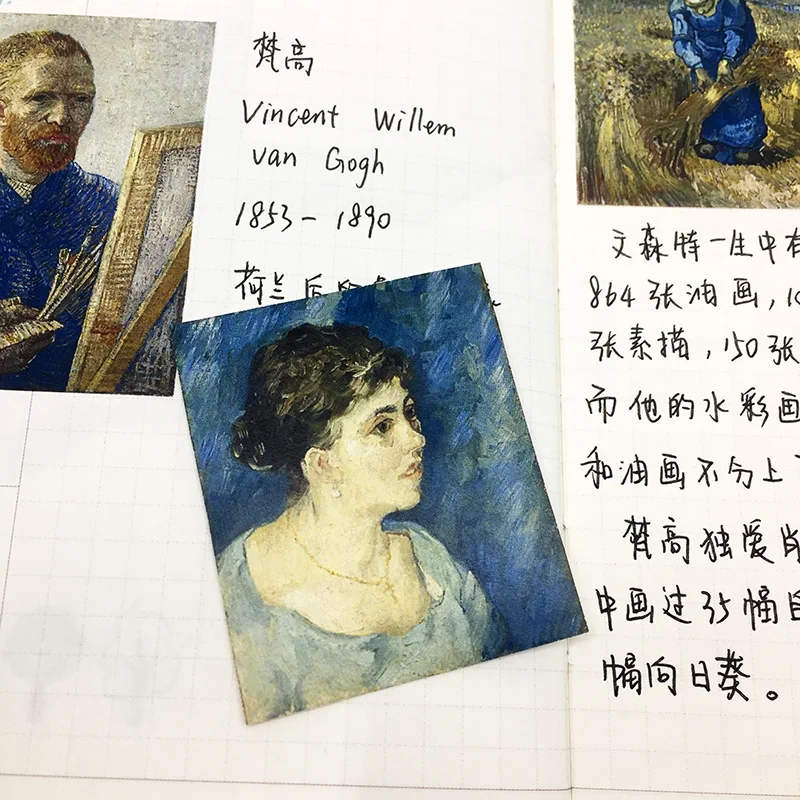 梵高
Vincent Willem
van Gogh
1853-1890
荷兰后
文森特一生中有
864张油画，
张素描，150张
而他的水彩画
和油画不分上
梵高独爱
中画过35幅
幅向日葵。